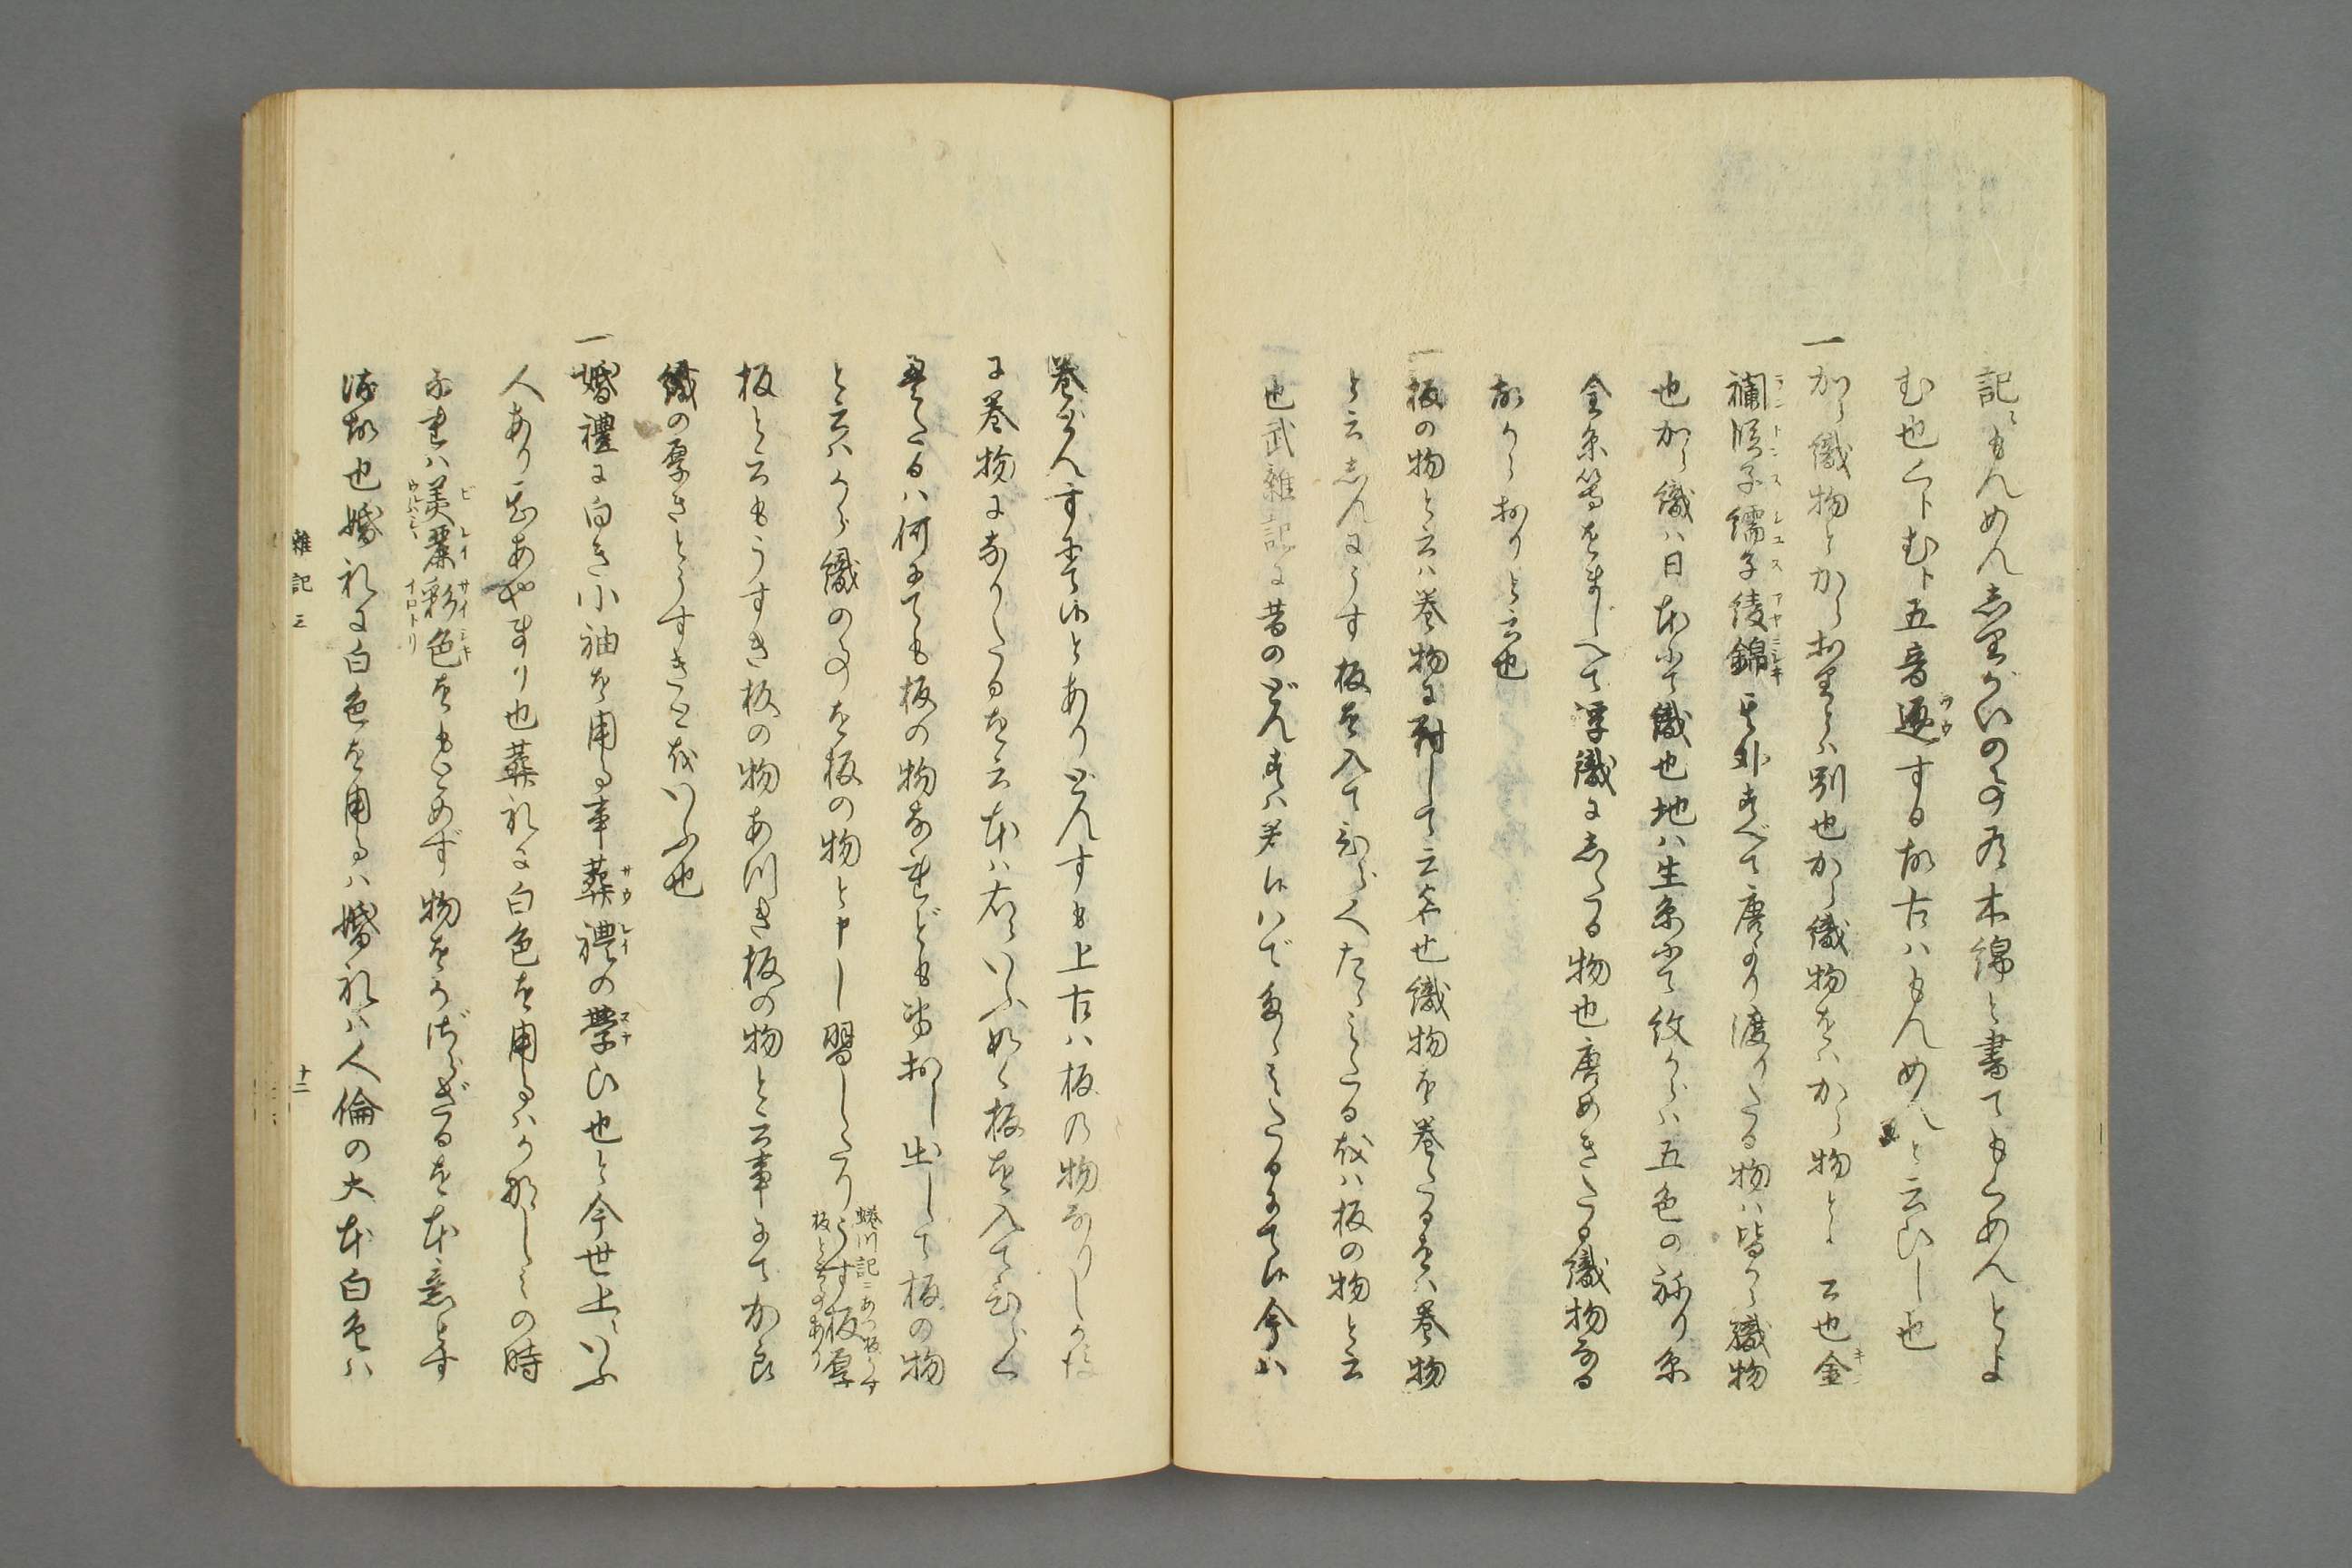 記にもんめん志里がいの事有木綿と書てもくめんとよ
む也くトむト五音通する故古はもんめんと云ひし也
一から織物とから於里とは別也から織物をはから物とも云也金
襴緞子繻子綾錦其外すべて唐より渡りたる物は皆から織物
也から織は日本にて織也地は生糸にて紋がらは五色の祢り糸
金糸等をまじへて浮織に志たる物也唐めきたる織物なる
故からおりと云也
一板の物と云は巻物に対して云名也織物を巻たるをば巻物
と云志んにうす板を入てひらくたゝみたるをば板の物と云
也武雑記に昔のどんすは着候はでたゝみたるにて候今は
巻どんすにて候とありどんすも上古は板の物なりしが後
に巻物になりたるを云本は右にいふ如く板を入てひらく
畳たるは何にても板の物なれども略し出して板の物
と云はから織の事を板の物と申し習したりうす板厚
蜷川記ニあつ板うす
板と云事あり
板と云もうすき板の物あつき板の物と云事にてから
織の厚きとうすきとをいふ也
一婚禮に白き小袖を用る事葬禮の学び也と今世上にいふ
人あり是あやまり也葬礼に白色を用るはかなしみの時
なれば美麗彩色をもとめず物をかざらざるを本意とす
る故也婚礼に白色を用るは婚礼は人倫の大本白色は
雑記三
十二